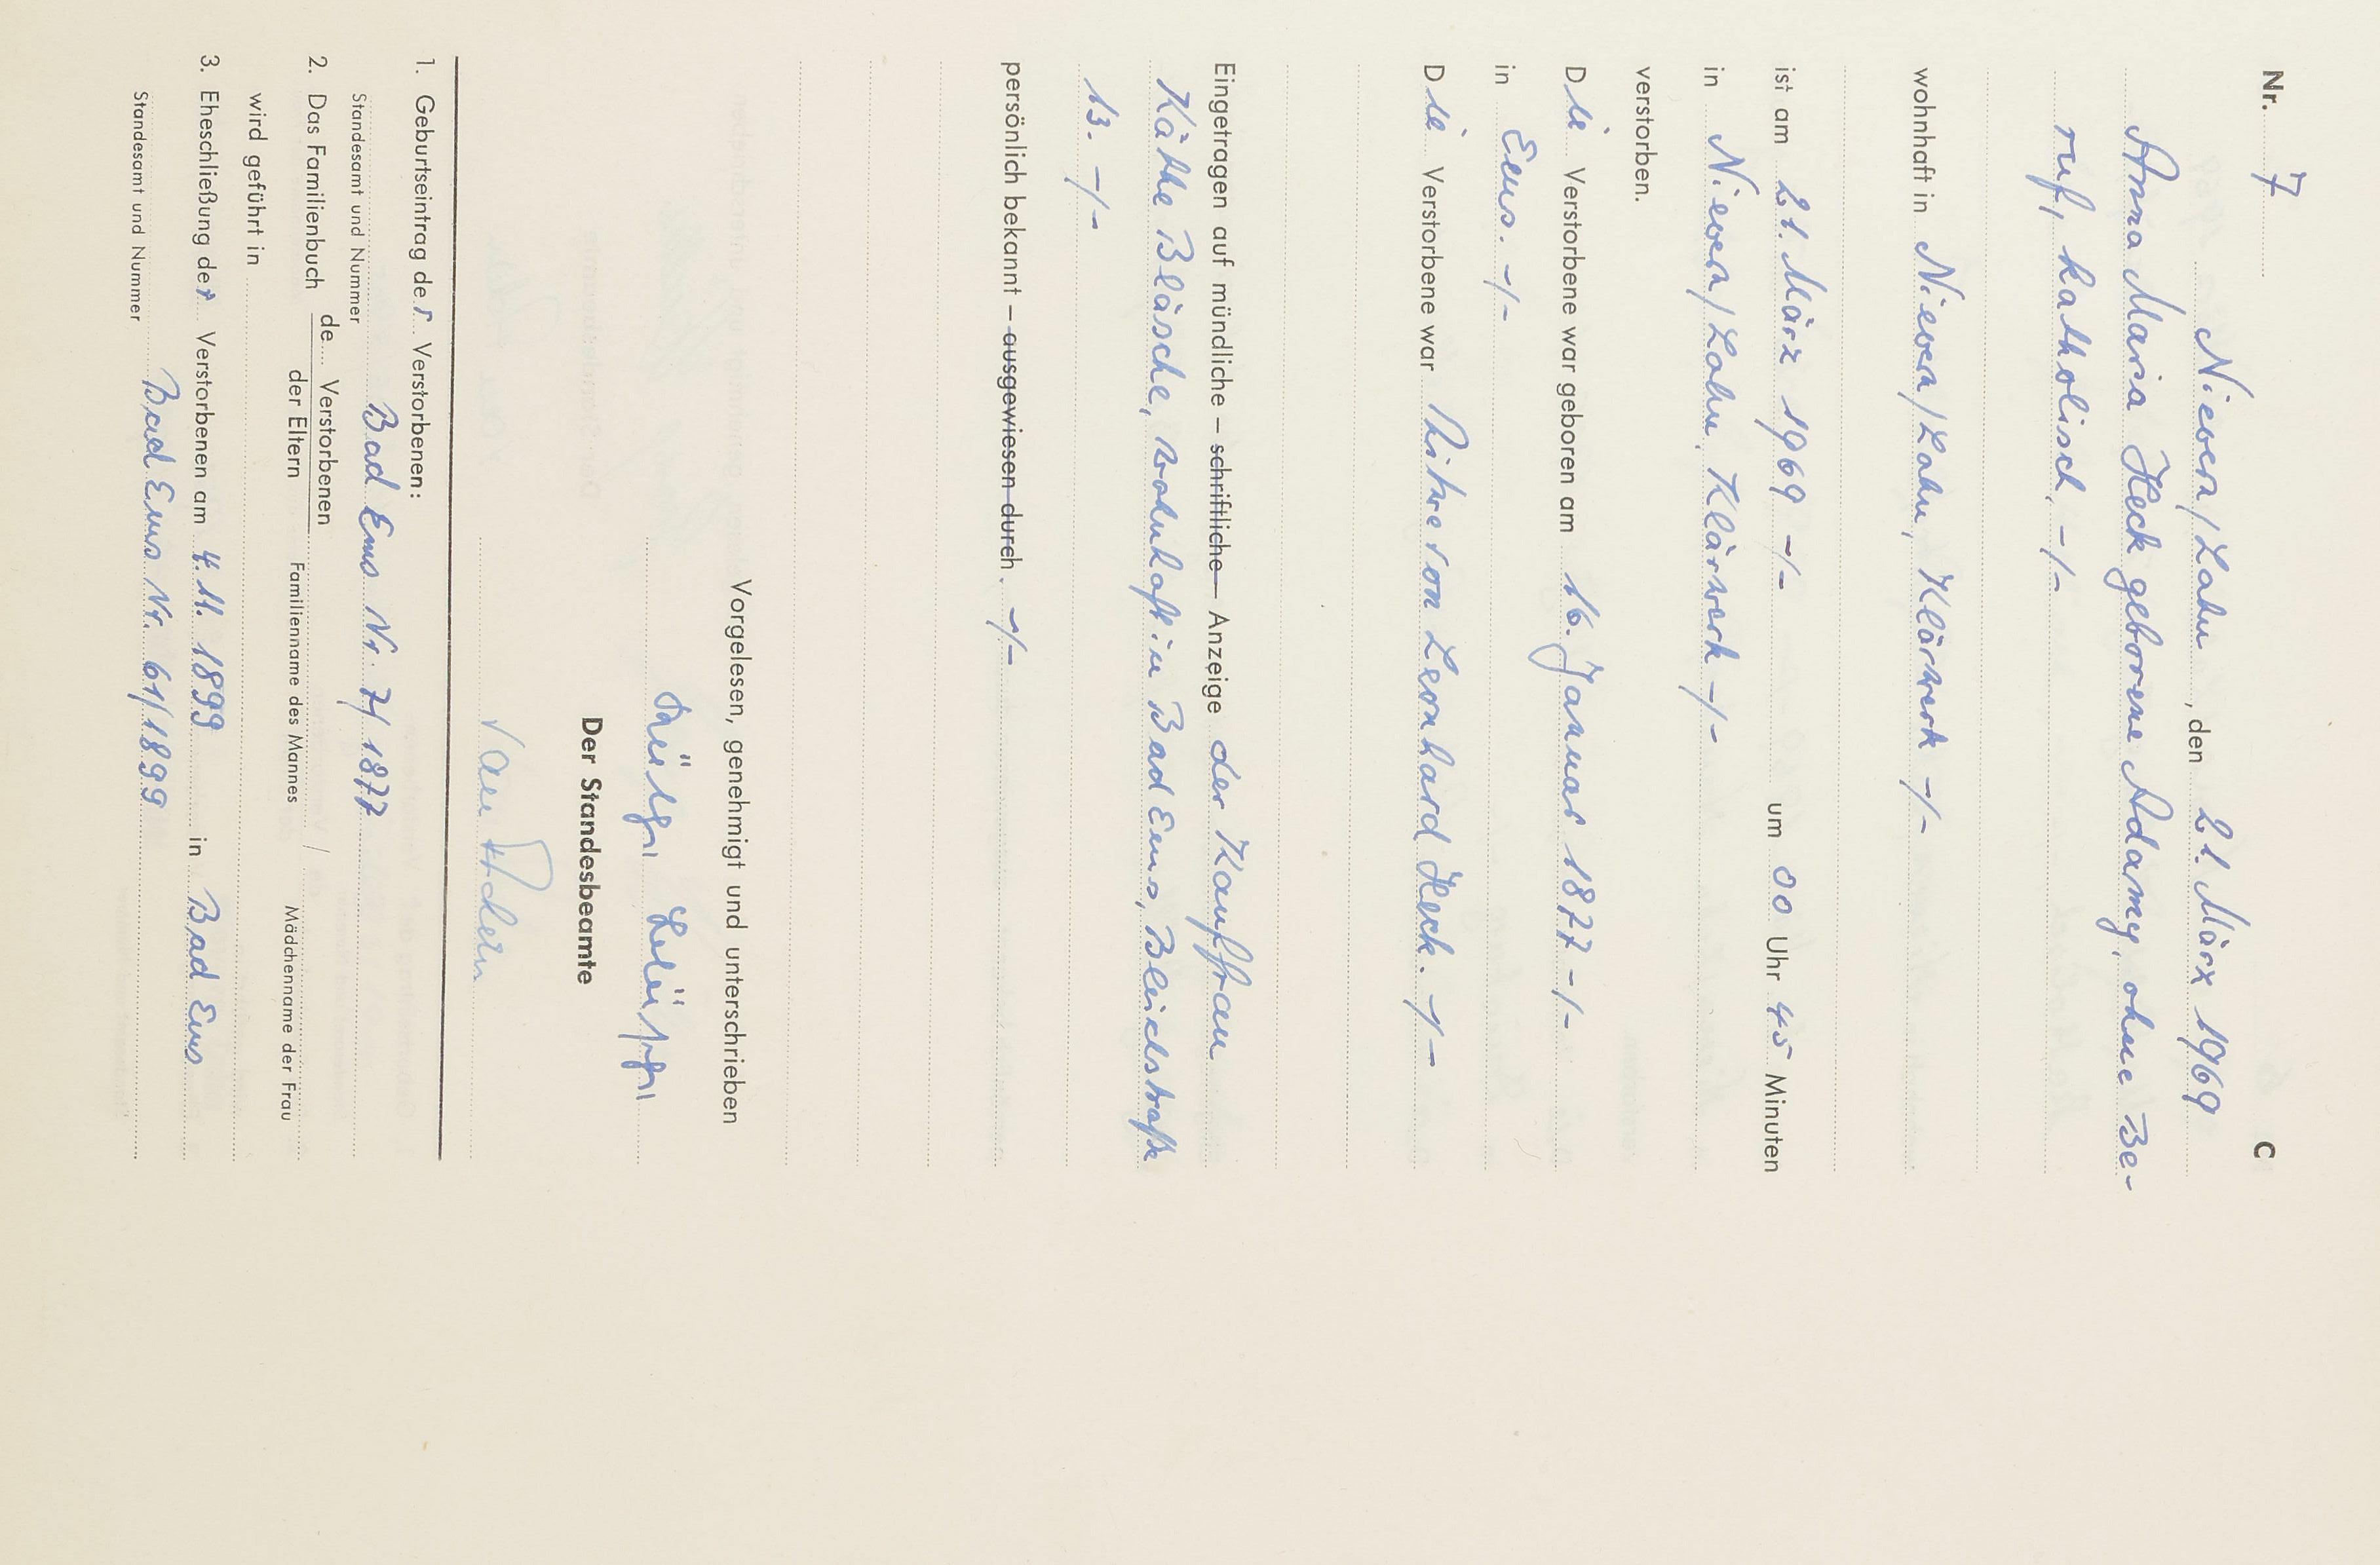 Nr. 7 C
Nievern/Lahn, den 21. März 1969
Anna Maria Heck geborene Adamy, ohne Be-
ruf, katholisch, -/-
wohnhaft in Nievern/Lahn, Klärwerk -/-
ist am 21. März 1969 -/- um 00 Uhr 45 Minuten
in Nievern/Lahn, Klärwerk -/-
verstorben.
Die Verstorbene war geboren am 16. Januar 1877 -/-
in Ems. -/-
Die Verstorbene war Witwe von Leonhard Heck. -/-
Eingetragen auf mündliche – schriftliche – Anzeige der Kauffrau
Käthe Bläsche, wohnhaft in Bad Ems, Bleichstraße
13. -/-
persönlich bekannt – ausgewiesen durch. -/-
Vorgelesen, genehmigt und unterschrieben
Der Standesbeamte
1. Geburtseintrag der Verstorbenen:
Standesamt und Nummer Bad Ems Nr. 7/1877
2. Das Familienbuch de Verstorbenen / der Eltern
Familienname des Mannes / Mädchenname der Frau
wird geführt in
3. Eheschließung der Verstorbenen am 4.11.1899 in Bad Ems
Standesamt und Nummer Bad Ems Nr. 61/1899